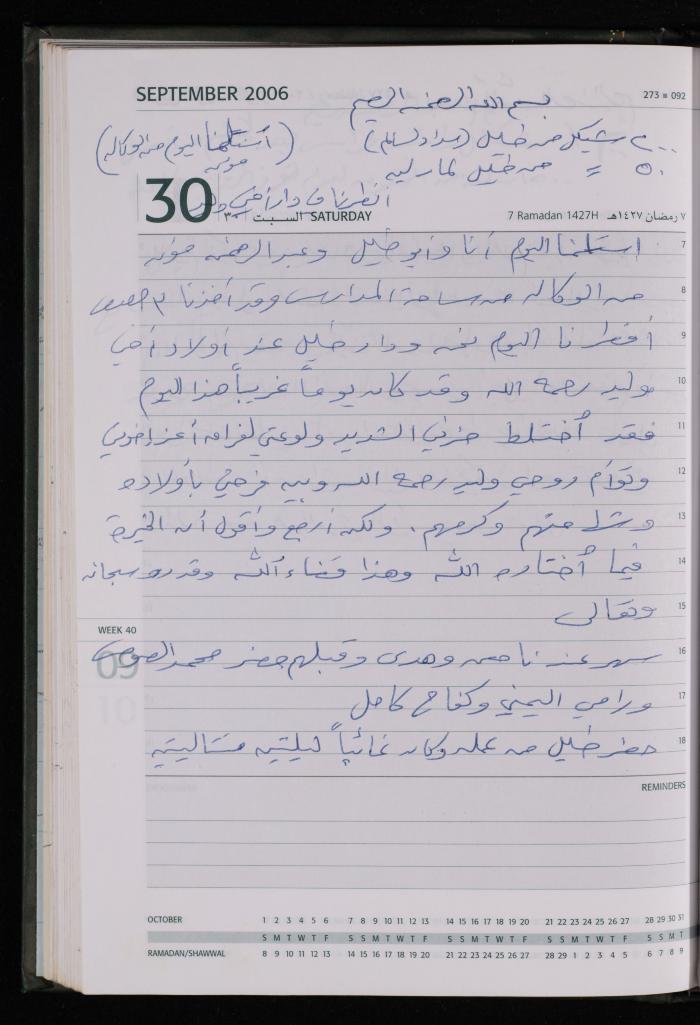 SEPTEMBER 2006
273 ■ 092
بسم الله الرحمن الرحيم
٢٠٠ شيكل من خليل (سداد السالم)
(أستلمنا اليوم من الوكاله مؤنه)
٥٠ = من خليل لمارليه
أفطرنا في دار أخي وليد
30
السبت ٣٠ SATURDAY
7 Ramadan 1427H ٧ رمضان ١٤٢٧هـ
7 استلمنا اليوم أنا وأبو خليل وعبد الرحمن مؤنه
8 من الوكاله من ساحة المدارس وقد أخذنا ٣
9 أفطرنا اليوم نحن ودار خليل عند أولاد أخي
10 وليد رحمه الله وقد كان يوماً غريباً هذا اليوم
11 فقد أختلط حزني الشديد ولوعتي لفراق أعز إخوتي
12 وتوأم روحي وليد رحمه الله وبين فرحتي بأولاده
13 وكرمهم. ولكن أرجع وأقول أن الخيرة
14 فيما أختاره الله وهذا قضاء الله وقدره سبحانه
15 وتعالى
WEEK 40
09
10
16 سهر عندنا حسن وهدى وقبلهم حضر محمد
17 ورامي اليمني وكفاح كامل
18 حضر خليل من عمله وكان غائباً ليلتين متتاليتين
REMINDERS
OCTOBER 1 2 3 4 5 6 7 8 9 10 11 12 13 14 15 16 17 18 19 20 21 22 23 24 25 26 27 28 29 30 31
S M T W T F S S M T W T F S S M T W T F S S M T W T F S S M T
RAMADAN/SHAWWAL 8 9 10 11 12 13 14 15 16 17 18 19 20 21 22 23 24 25 26 27 28 29 1 2 3 4 5 6 7 8 9